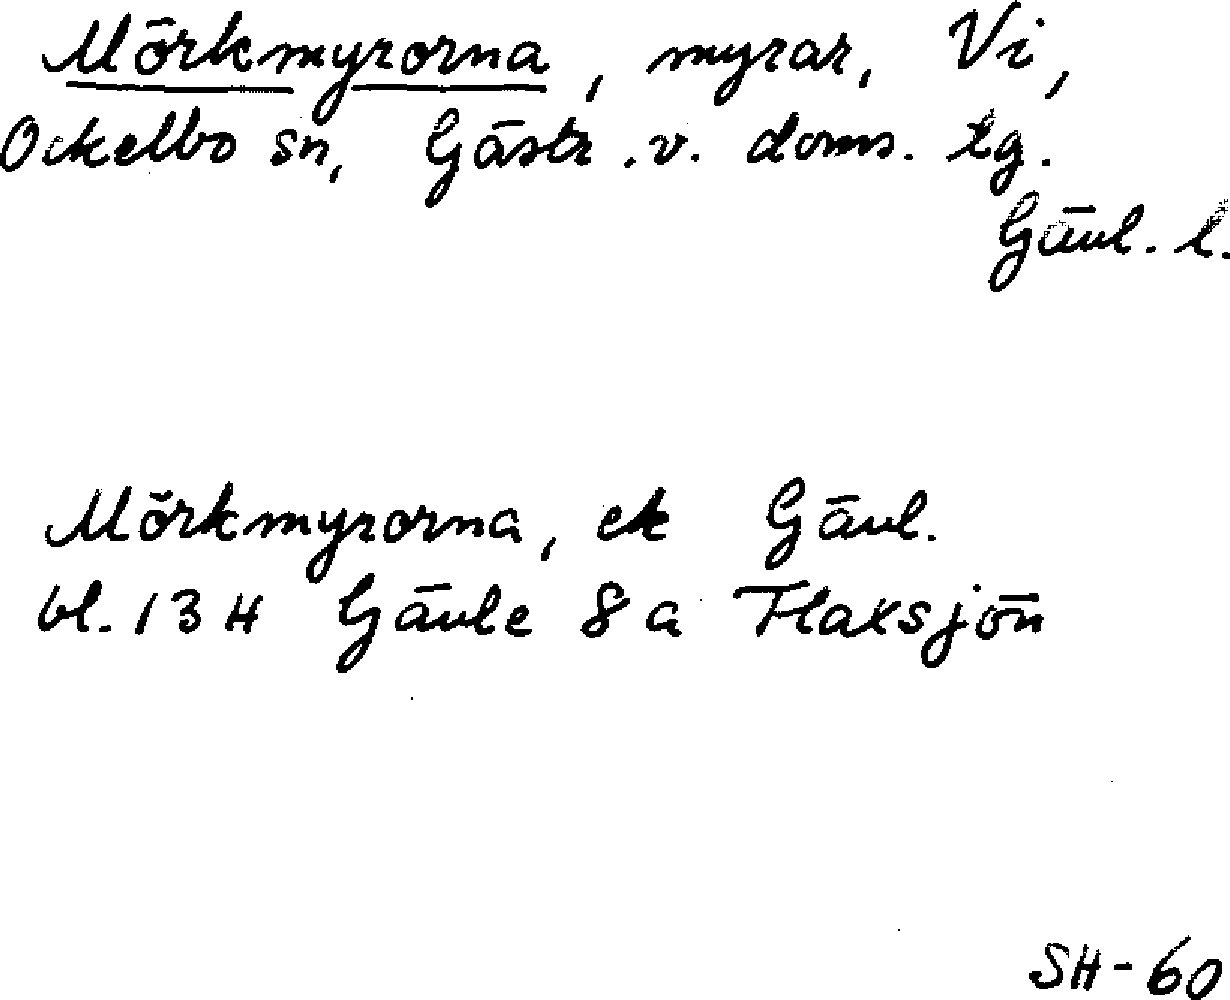 Mörkmyrorna, myrar, Vi,
Ockelbo sn, Gästr.v. doms. tg.
Gävl. l.
Mörkmyrorna, ek Gävl.
bl. 13 H Gävle 8 a Flaxsjön
SH-60